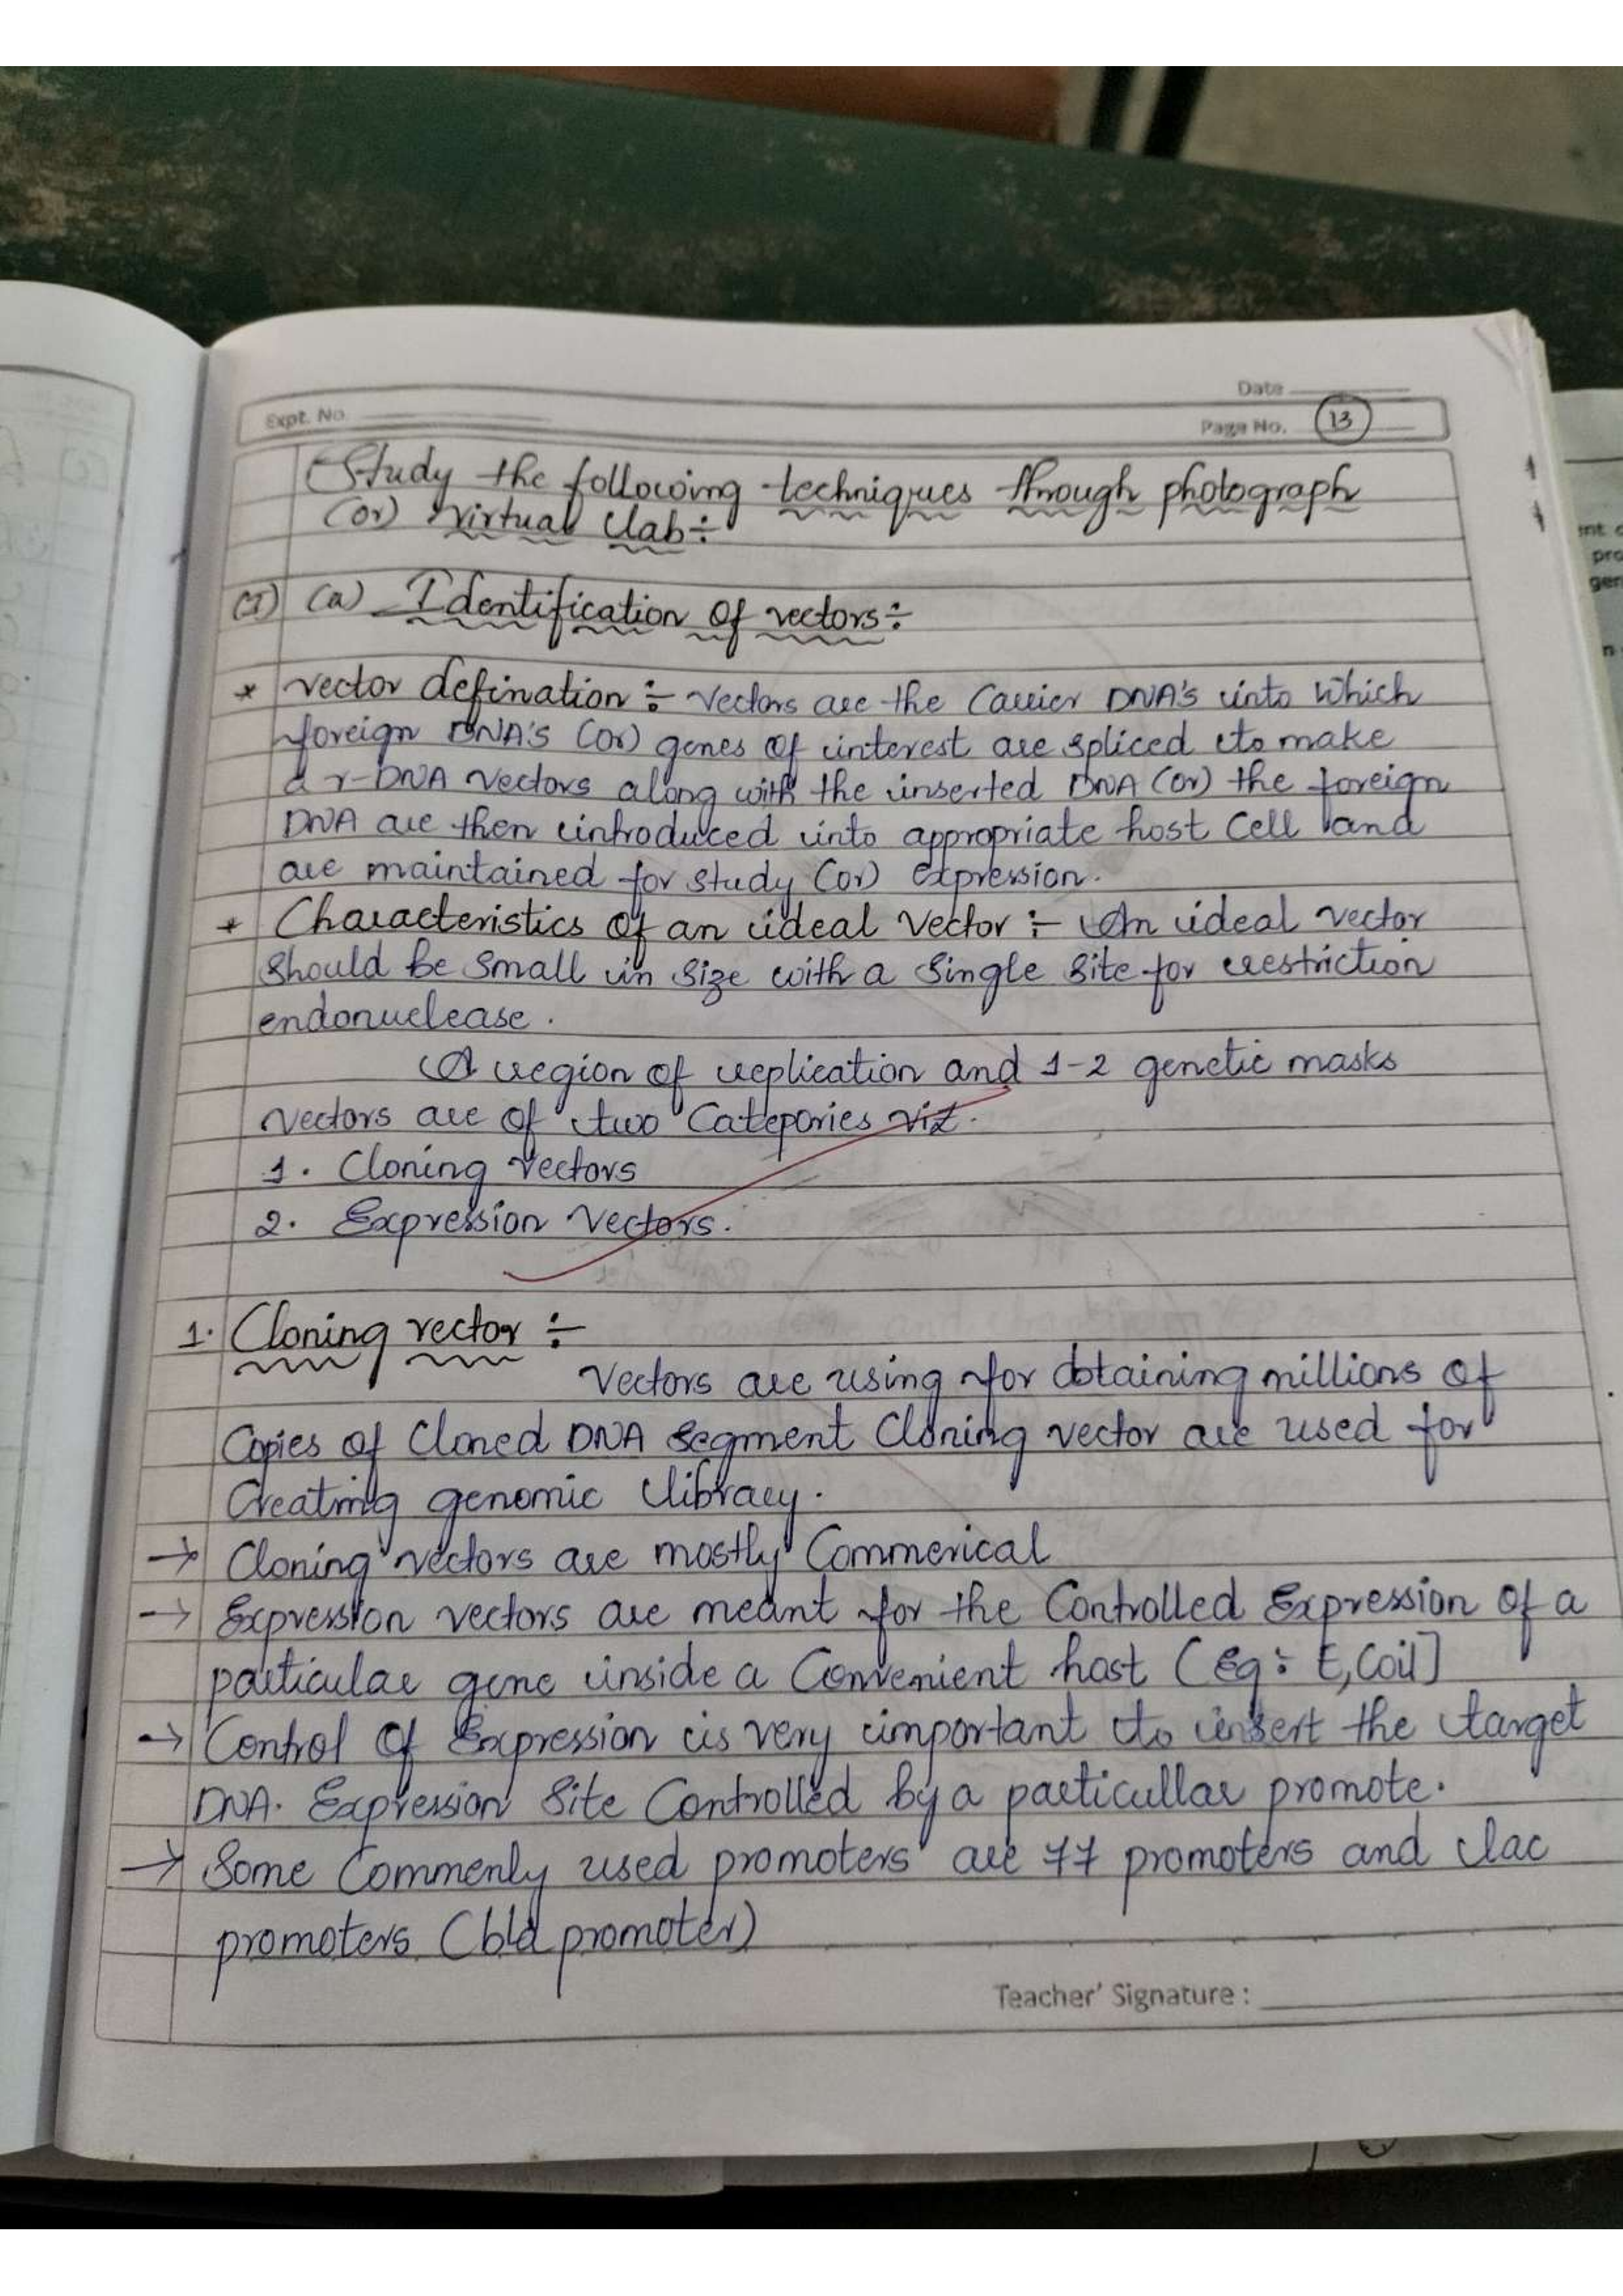 Date
Expt. No
Page No. 13
Study the following techniques through photograph
(or) virtual lab :-
(I) (a) Identification of vectors :-
* vector defination :- Vectors are the Carrier DNA's into which
foreign DNA's (or) genes of interest are spliced to make
a r-DNA vectors along with the inserted DNA (or) the foreign
DNA are then introduced into appropriate host Cell and
are maintained for study (or) expression.
* Characteristics of an ideal Vector :- An ideal vector
should be small in size with a single site for restriction
endonuclease.
A region of replication and 1-2 genetic masks
vectors are of two Categories viz.
1. Cloning vectors
2. Expression Vectors.
1. Cloning vector :-
Vectors are using for obtaining millions of
Copies of Cloned DNA segment Cloning vector are used for
Creating genomic library.
→ Cloning vectors are mostly Commerical
→ Expression vectors are meant for the Controlled Expression of a
particular gene inside a Convenient host (Eg: E,Coil]
→ Control of Expression is very important to insert the target
DNA. Expression Site Controlled by a particullar promote.
→ Some Commenly used promoters are 77 promoters and lac
promoters (bla promoter)
Teacher' Signature :